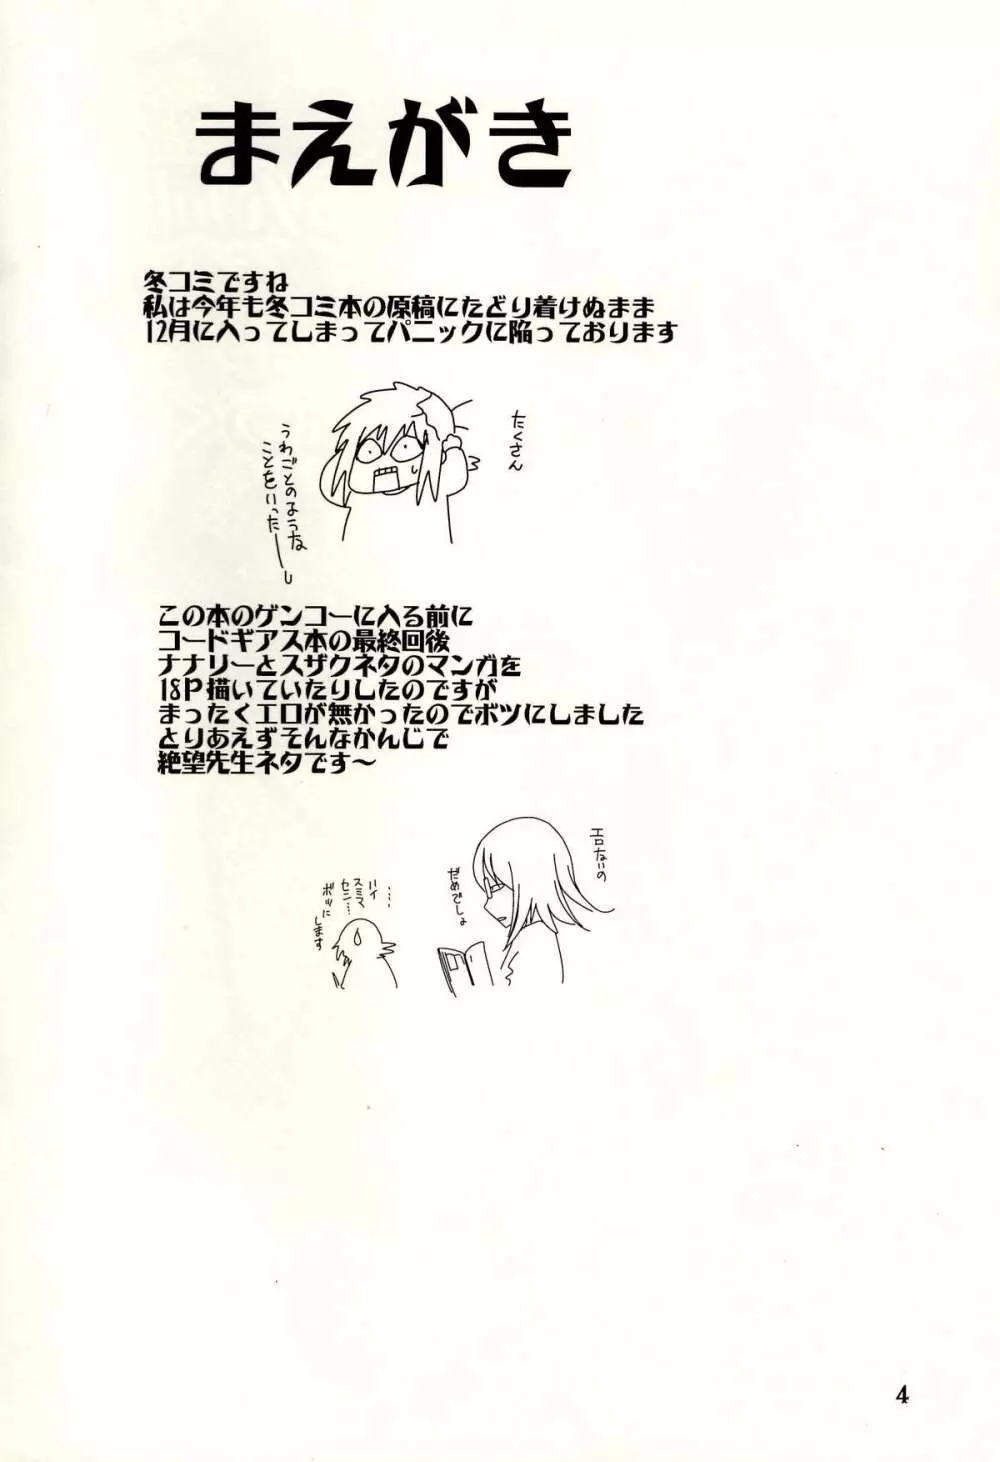 まえがき
冬コミですね
私は今年も冬コミ本の原稿にたどり着けぬまま
12月に入ってしまってパニックに陥っております
たくさん
うわごとのような
ことをいったーーし
この本のゲンコーに入る前に
コードギアス本の最終回後
ナナリーとスザクネタのマンガを
18P描いていたりしたのですが
まったくエロが無かったのでボツにしました
とりあえずそんなかんじで
絶望先生ネタです～
エロないの
だめでしょ
……
ハイ
スミマ
セン…
ボツに
します
4